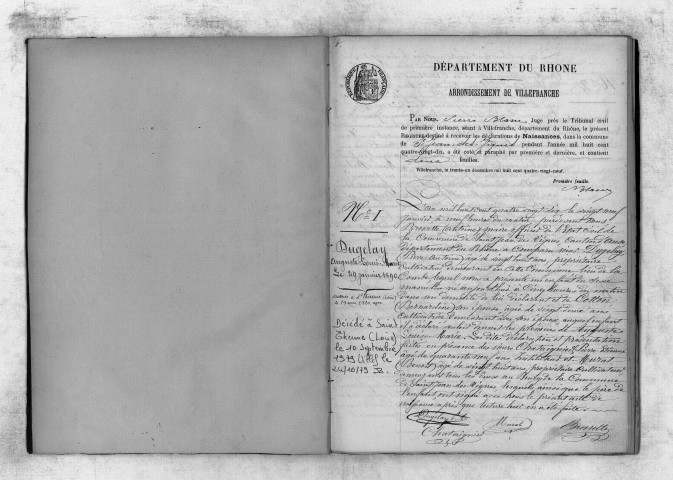 DÉPARTEMENT DU RHONE
ARRONDISSEMENT DE VILLEFRANCHE
PAR NOUS, Pierre Blanc Juge près le Tribunal civil
de première instance, séant à Villefranche, département du Rhône, le présent
REGISTRE destiné à recevoir les déclarations de Naissances, dans la commune
de St Jean des Vignes pendant l'année mil huit cent
quatre-vingt-dix, a été coté et paraphé par première et dernière, et contient
feuilles.
Villefranche, le trente-un décembre mil huit cent quatre-vingt-neuf.
Première feuille.
Blanc
No 1
Dugelay
Auguste Louis Marie
Le 29 janvier 1890
Décédé à Saint
Etienne (Loire)
le 10 Septembre
1979
24/10/79
L'an mil huit cent quatre vingt dix le vingt neuf
janvier à neuf heures du matin par devant Nous
maire officier de l'Etat civil de
la Commune de Saint Jean des Vignes Canton d'Anse
département du Rhône a comparu Dugelay
Pierre Antoine âgé de vingt huit ans propriétaire
cultivateur demeurant en cette Commune lieu de la
Combe lequel nous a présenté un enfant du sexe
masculin né aujourd'hui à cinq heures du matin
dans son domicile de lui déclarant et de Cotton
Bernardine son épouse, âgée de vingt deux ans
cultivatrice demeurant avec son époux auquel enfant
il a déclaré vouloir donner les prénoms de Auguste
Louis Marie. Les dites déclaration et présentation
faites en présence des sieurs Chataignier Pierre Etienne
âgé de quarante neuf ans, Instituteur et Murat
Benoit âgé de vingt huit ans, propriétaire cultivateur
tous les deux au Bourg de la Commune
de Saint Jean des Vignes lesquels ainsi que le père de
l'enfant ont signé avec nous le présent acte de
naissance après que lecture leur en a été faite.
Dugelay
Murat
Chataignier